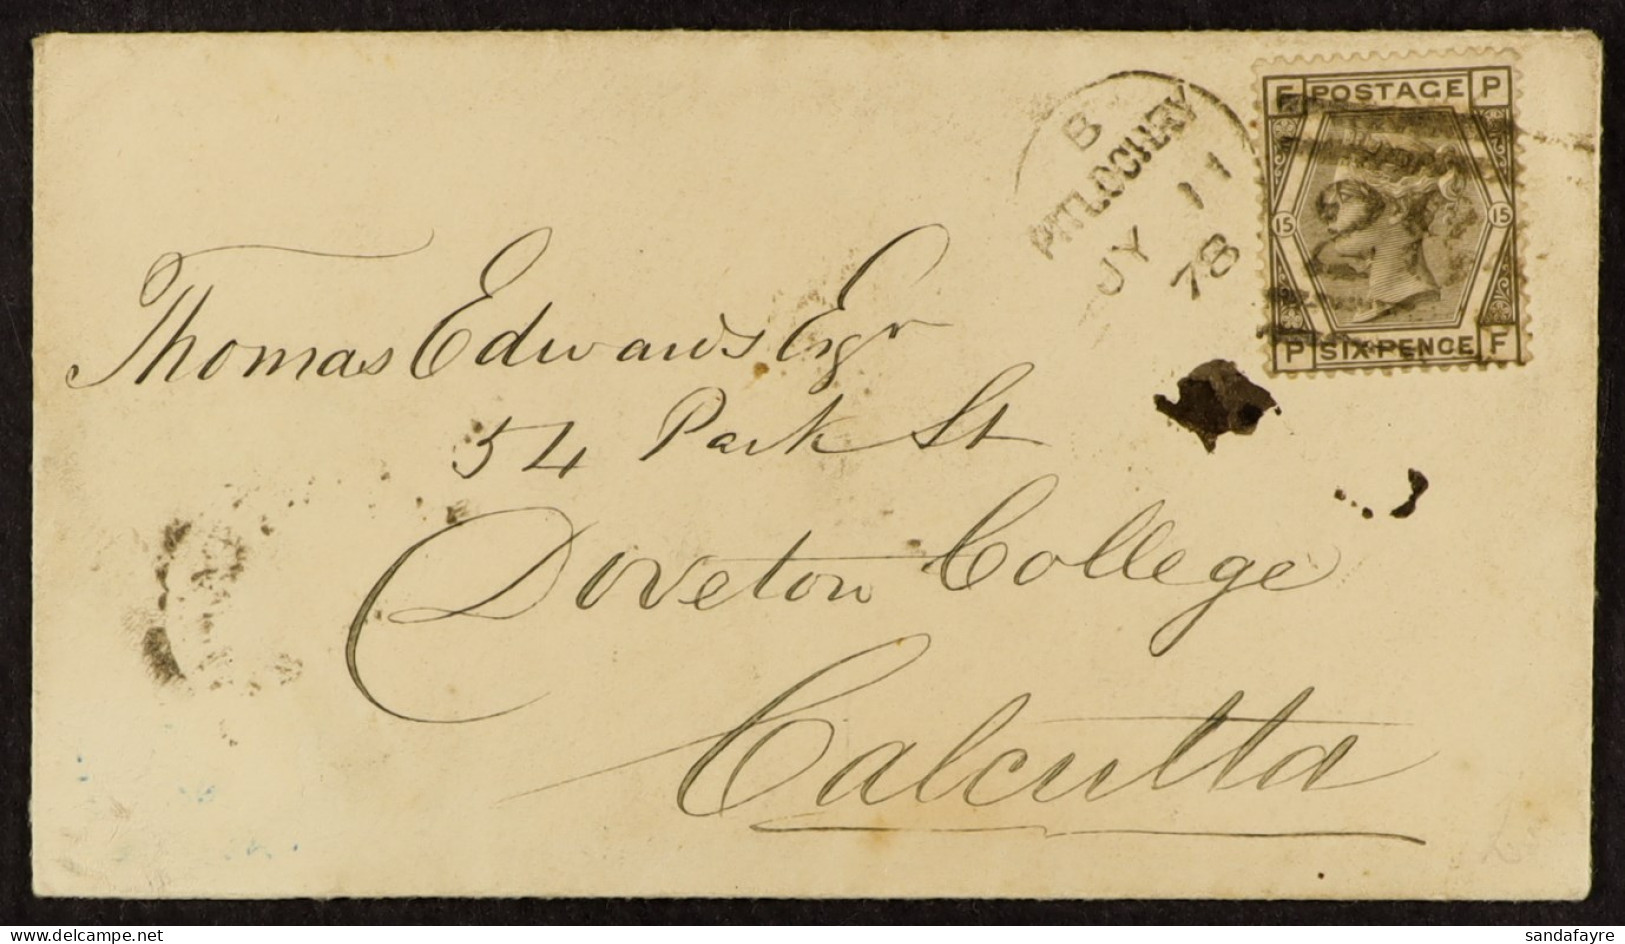 Thomas Edwards Esqr
54 Park St
Doveton College
Calcutta
B
PITLOCHRY
JY 11
78
F POSTAGE P
15 15
P SIX PENCE F
delcampe.net
sandafayre